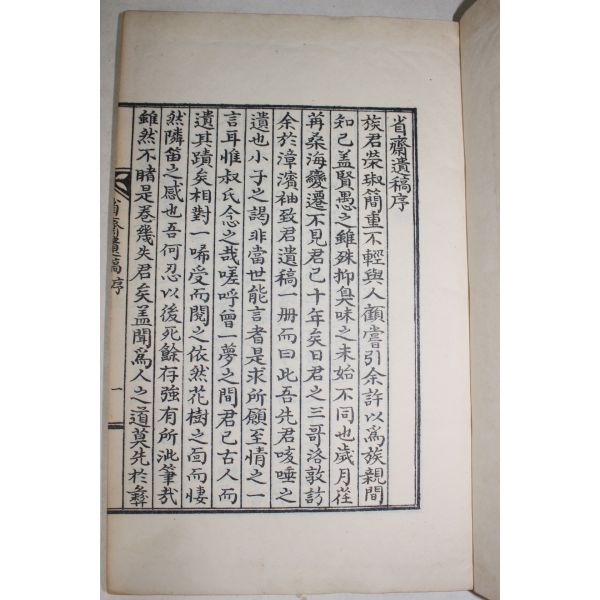 省齋遺稿序
族君榮琡簡重不輕與人顧嘗引余許以爲族親間
知己盖賢愚之雖殊抑臭味之未始不同也歲月荏
苒桑海變遷不見君已十年矣日君之三哥洛敦訪
余於漳濱袖致君遺稿一册而曰此吾先君咳唾之
遺也小子之謁非當世能言者是求所願至情之一
言耳惟叔氏念之哉嗟呼曾一夢之間君已古人而
遺其蹟矣相對一唏受而閱之依然花樹之面而悽
然隣笛之感也吾何忍以後死餘存強有所泚筆哉
雖然不睹是卷幾失君矣盖聞爲人之道莫先於彝
省齋遺稿序
一